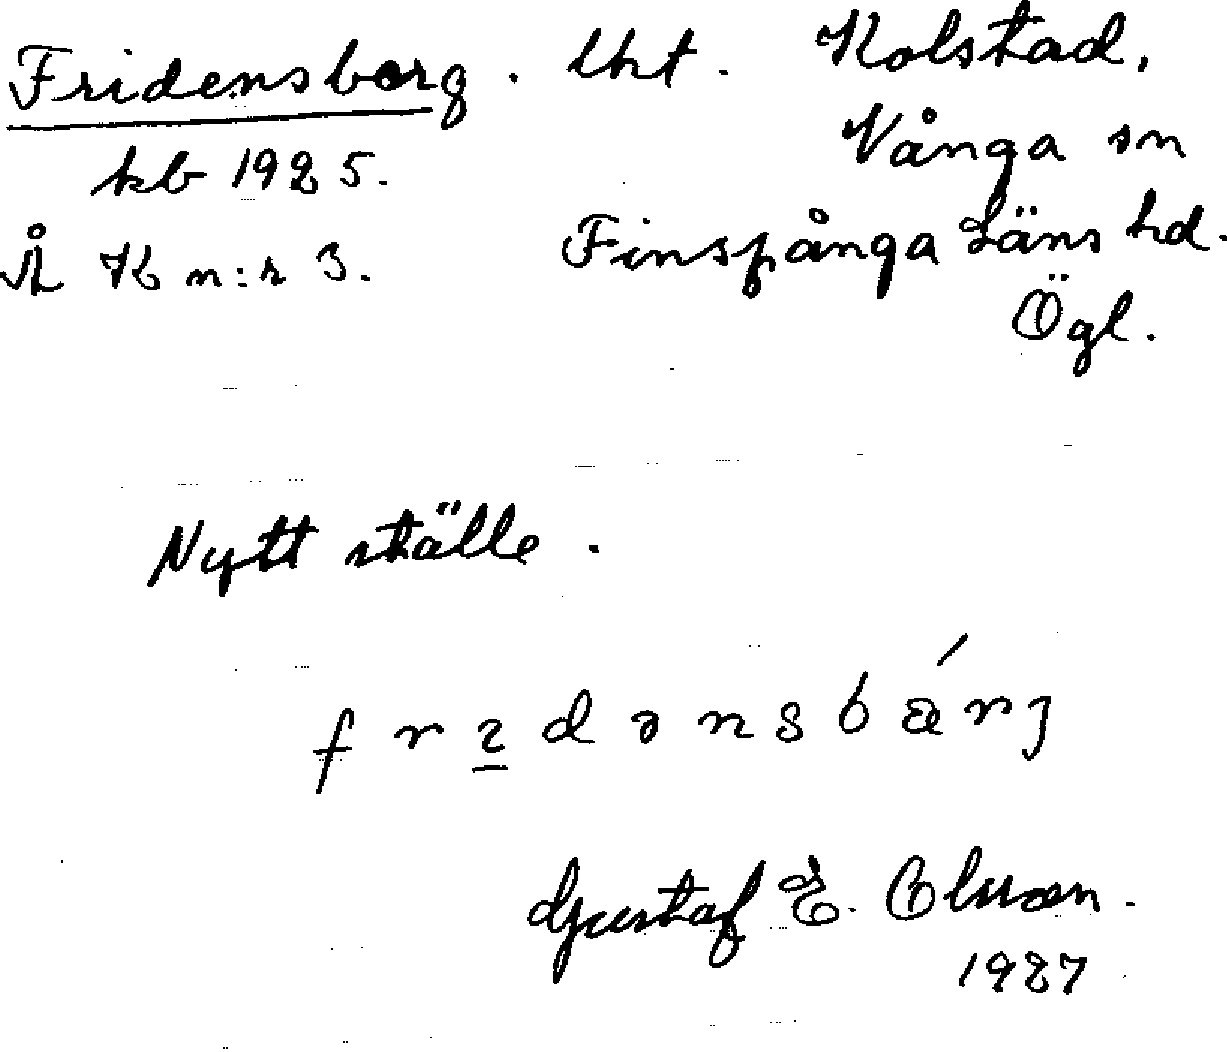 Fridensborg. lht. Kolstad,
kb 1925. Vånga sn
ÄK n:r 3. Finspånga Läns hd.
Ögl.
Nytt ställe.
frɪdənsbærj
Gustaf E. Olsson.
1927